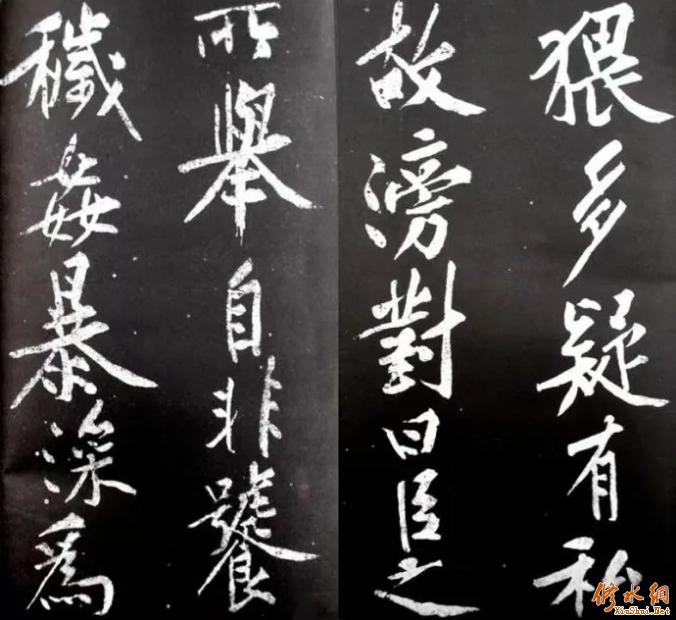 猥多疑有私
故滂對曰臣之
所舉自非饕
穢姦暴深為
修水網
XiuShui.Net